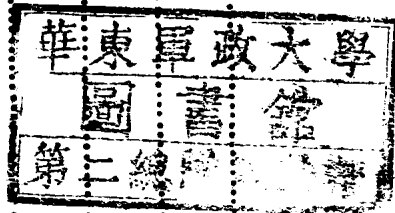 華東軍政大學
圖書館
第二總